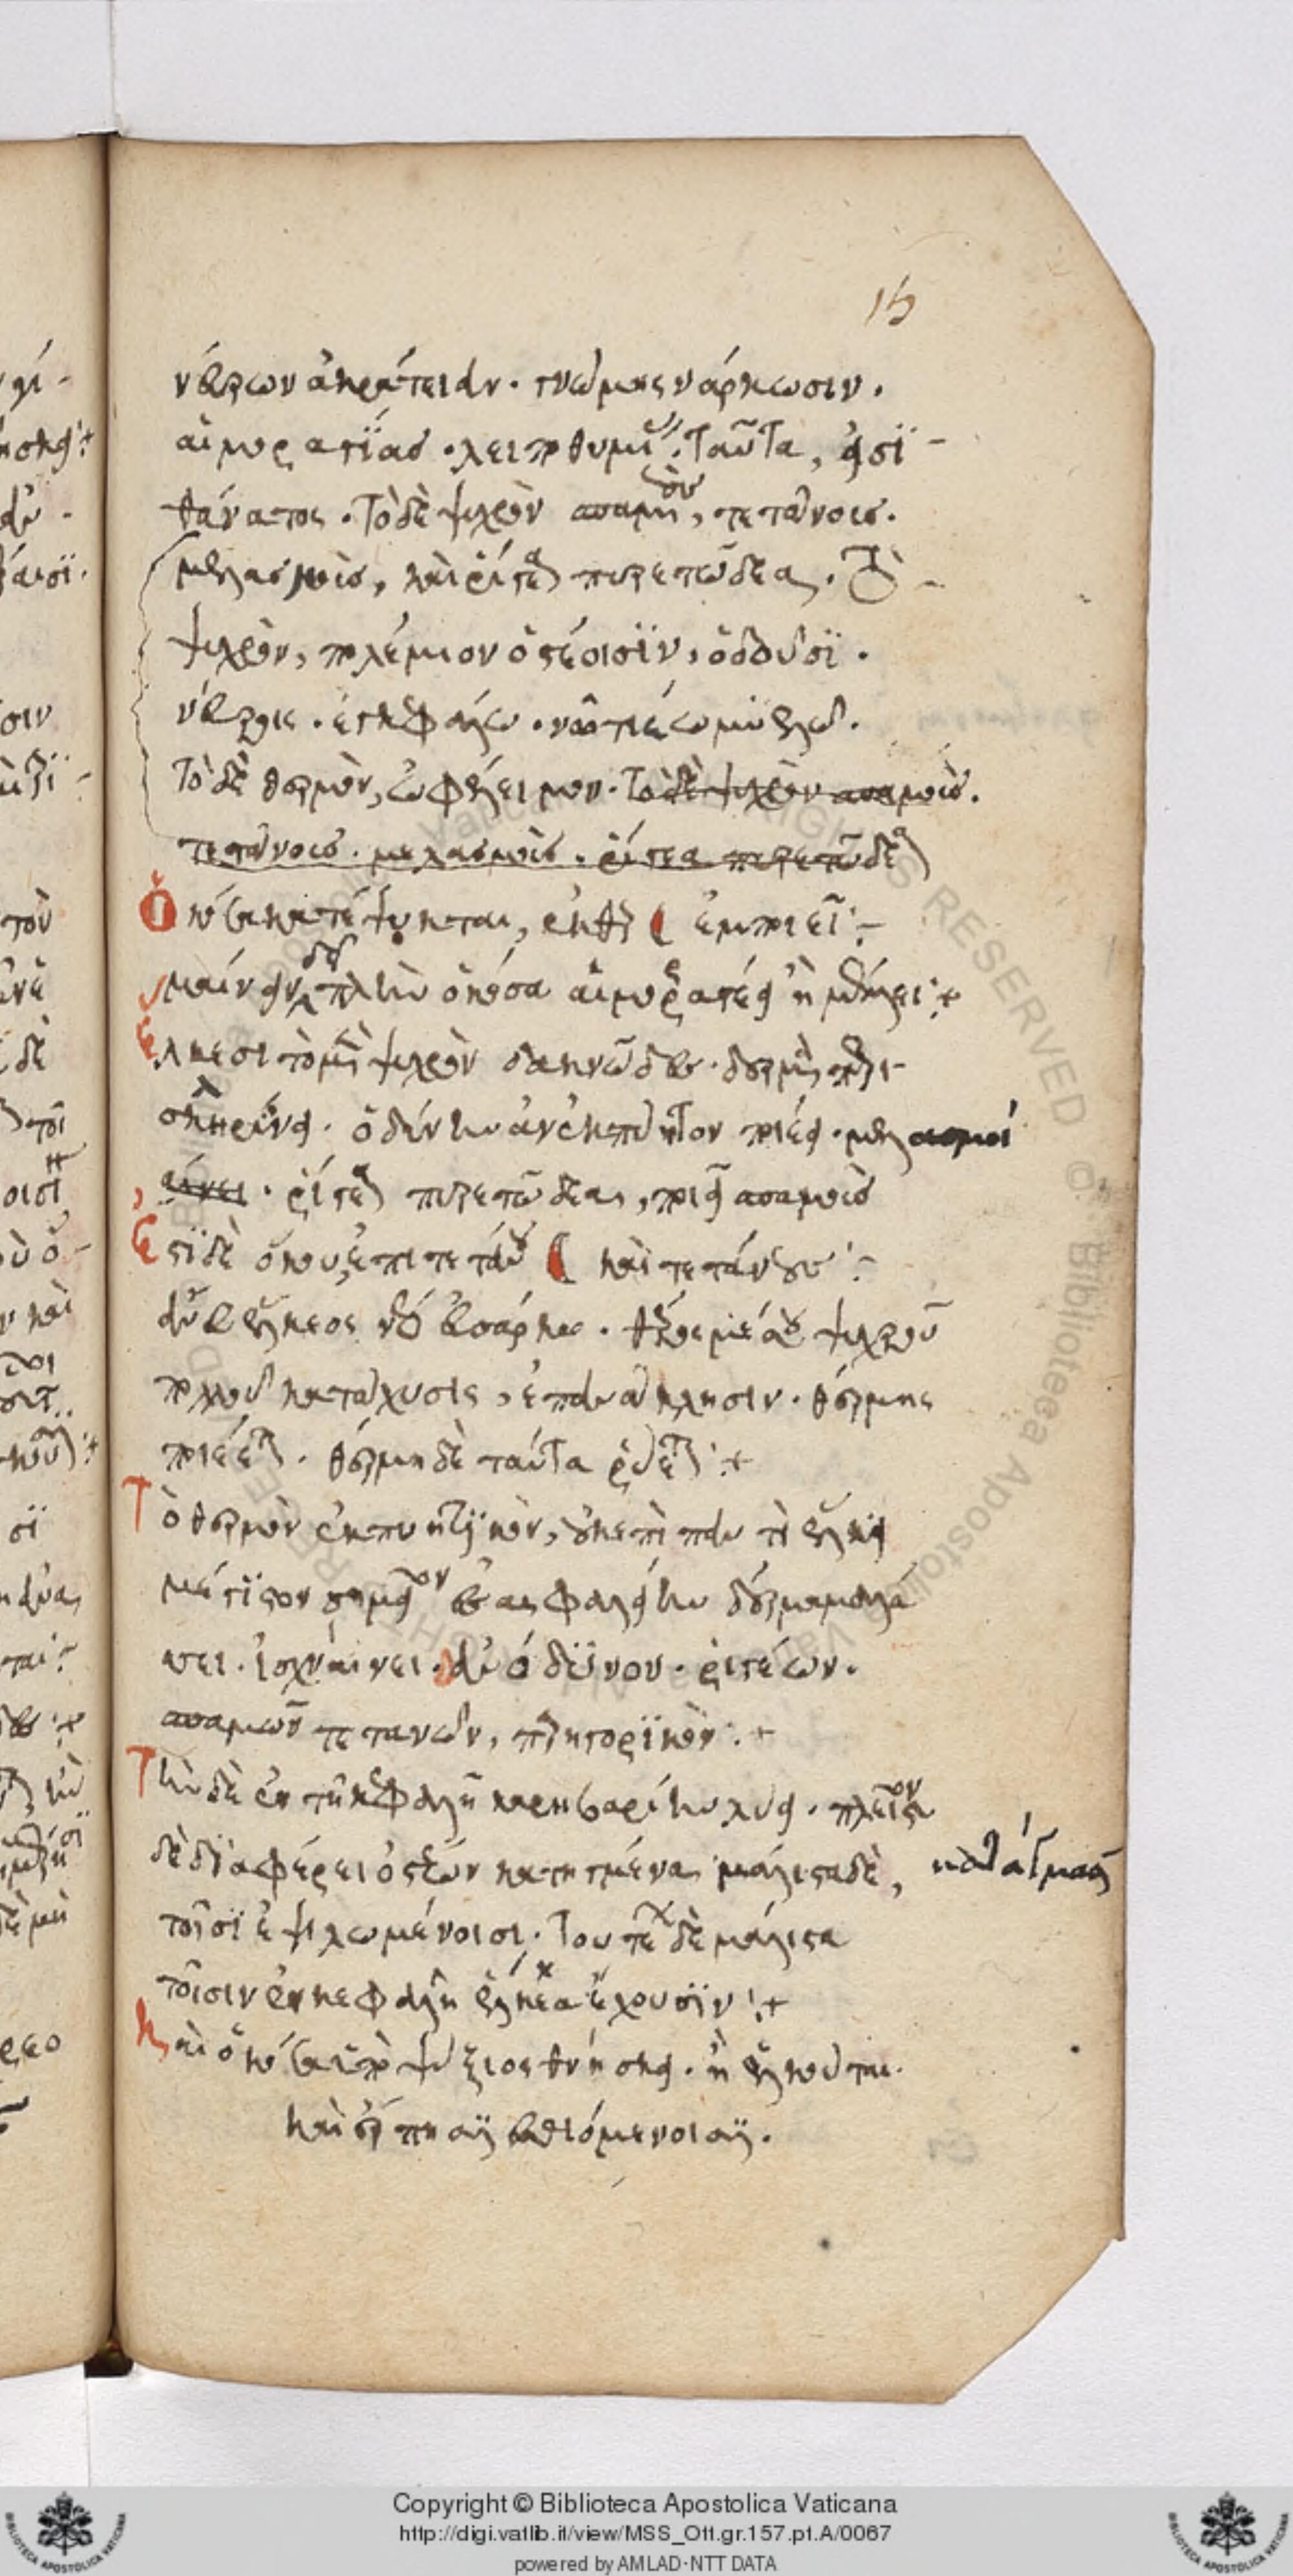 15
νεύρων ἀκράτειαν. γνώμης νάρκωσιν.
αἱμορραγίας. λειποθυμίας. ταῦτα, ἐς οἷσι
θάνατος. τὸ δὲ ψυχρὸν σπασμοὺς, τετάνους.
μελασμοὺς, καὶ ῥίγεα πυρετώδεα. τὸ
ψυχρὸν, πολέμιον ὀστέοισιν, ὀδοῦσι.
νεύροις. ἐγκεφάλω. νωτιαίω μυελῶ.
τὸ δὲ θερμὸν, ὠφέλειμον. τὸ δὲ ψυχρὸν σπασμοὺς.
τετάνους. μελασμοὺς. ῥίγεα πυρετώδεα
ὁκόσα κατέψυκται, ἐκθερ
ἕλκεσι τὸ μὲν ψυχρὸν δακνῶδες. δέρμα περι
σκληρύνει. ὀδύνην ἀνεκπύητον ποιέει. μελασμοὶ
ῥίγεα πυρετώδεα, ποιεῖ σπασμοὺς
ἔστι δὲ ὅκου, ἐπὶ τετάνου καὶ τετάνους
ἄνευ ἕλκεος νέω εὐσάρκω. θέρεος μέσου ψυχροῦ
πολλοῦ κατάχυσις, ἐπανάκλησιν. θέρμης
ποιέεται. θέρμη δὲ ταῦτα ῥύεται
τὸ θερμὸν ἐκπυητικὸν, οὐκ ἐπὶ παντὶ ἕλκει
μέγιστον σημεῖον ἐς ἀσφαλείην δέρμα μαλά
σσει. ἰσχναίνει. ἀνώδυνον. ῥιγέων.
σπασμῶν τετανῶν, παρηγορικὸν
τὴν δὲ ἐν τῆ κεφαλῆ καρηβαρίην λύει. πλεῖστον
δὲ διαφέρει ὀστέων κατηγμένα μάλιστα δὲ, κατάγμασι
τοῖσι ἐψιλωμένοισι. τουτέων δὲ μάλιστα
τοῖσιν ἐν κεφαλῆ ἕλκεα ἔχουσιν
καὶ ὁκόσα ὑπὸ ψύξιος θνήσκει. ἢ ἑλκοῦται.
καὶ ἕρπησιν ἐσθιομένοισιν.
Copyright © Biblioteca Apostolica Vaticana
http://digi.vatlib.it/view/MSS_Ott.gr.157.pt.A/0067
powered by AMLAD-NTT DATA